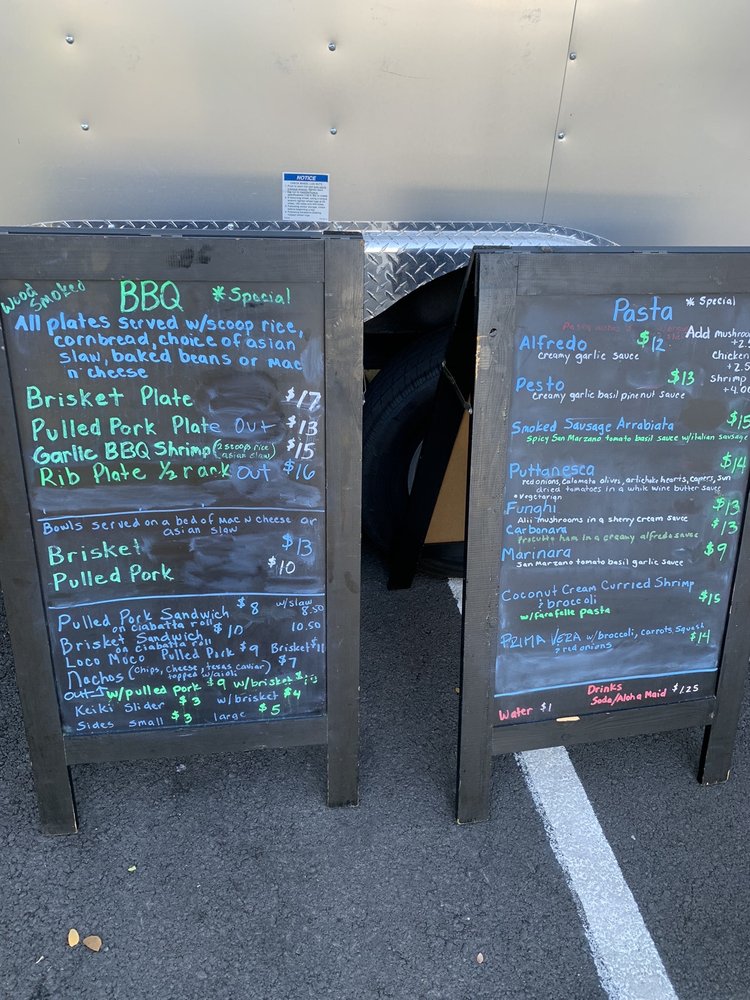 NOTICE
Wood
Smoked
BBQ
* Special
All plates served w/scoop rice,
cornbread, choice of asian
slaw, baked beans or mac
n cheese
Brisket Plate $17
Pulled Pork Plate Out $13
Garlic BBQ Shrimp (2 scoops rice, asian slaw) $15
Rib Plate 1/2 rack Out $16
Bowls served on a bed of mac n cheese or
asian slaw
Brisket $13
Pulled Pork $10
Pulled Pork Sandwich $8 w/slaw
on ciabatta roll 8.50
Brisket Sandwich $10 10.50
on ciabatta roll
Loco Moco Pulled Pork $9 Brisket $11
Nachos (chips, cheese, texas caviar) $7
topped w/aioli
out w/pulled pork $9 w/brisket
Keiki Slider $3 w/brisket $4
Sides small $3 large $5
Pasta
* Special
Alfredo $12
creamy garlic sauce
Add mushroo
+2.5
Chicken
+2.5
Shrimp
+4.00
Pesto $13
creamy garlic basil pinenut sauce
Smoked Sausage Arrabiata $15
Spicy San Marzano tomato basil sauce w/italian sausage
Puttanesca $14
red onions, calamata olives, artichoke hearts, capers, sun
dried tomatoes in a white wine butter sauce
* Vegetarian
Funghi $13
Alii mushrooms in a sherry cream sauce
Carbonara $13
Procutto ham in a creamy alfredo sauce
Marinara $9
San Marzano tomato basil garlic sauce
Coconut Cream Curried Shrimp
& broccoli $15
w/farafelle pasta
PRIMA VERA w/broccoli, carrots, squash
& red onions $14
Drinks
Water $1 Soda/Aloha Maid $1.25